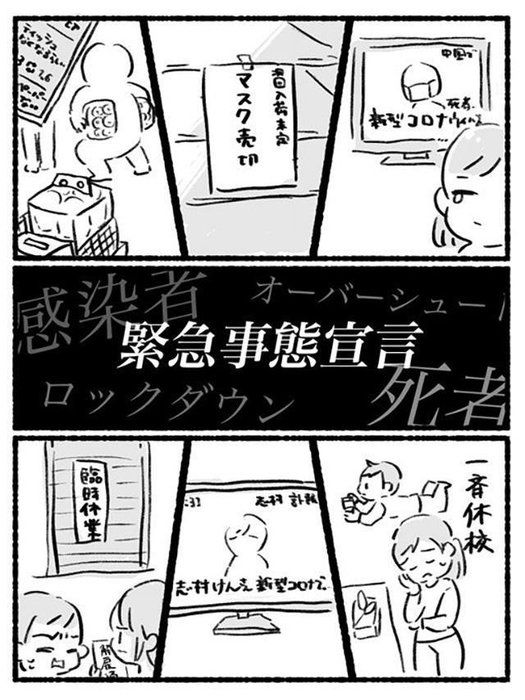 中国で
死者
新型コロナウイルス
次回入荷未定
マスク売切
ティッシュ
ペーパー
ない
感染者
オーバーシュート
緊急事態宣言
ロックダウン
死者
一斉休校
志村 訃報
志村けんさん新型コロナで
臨時休業